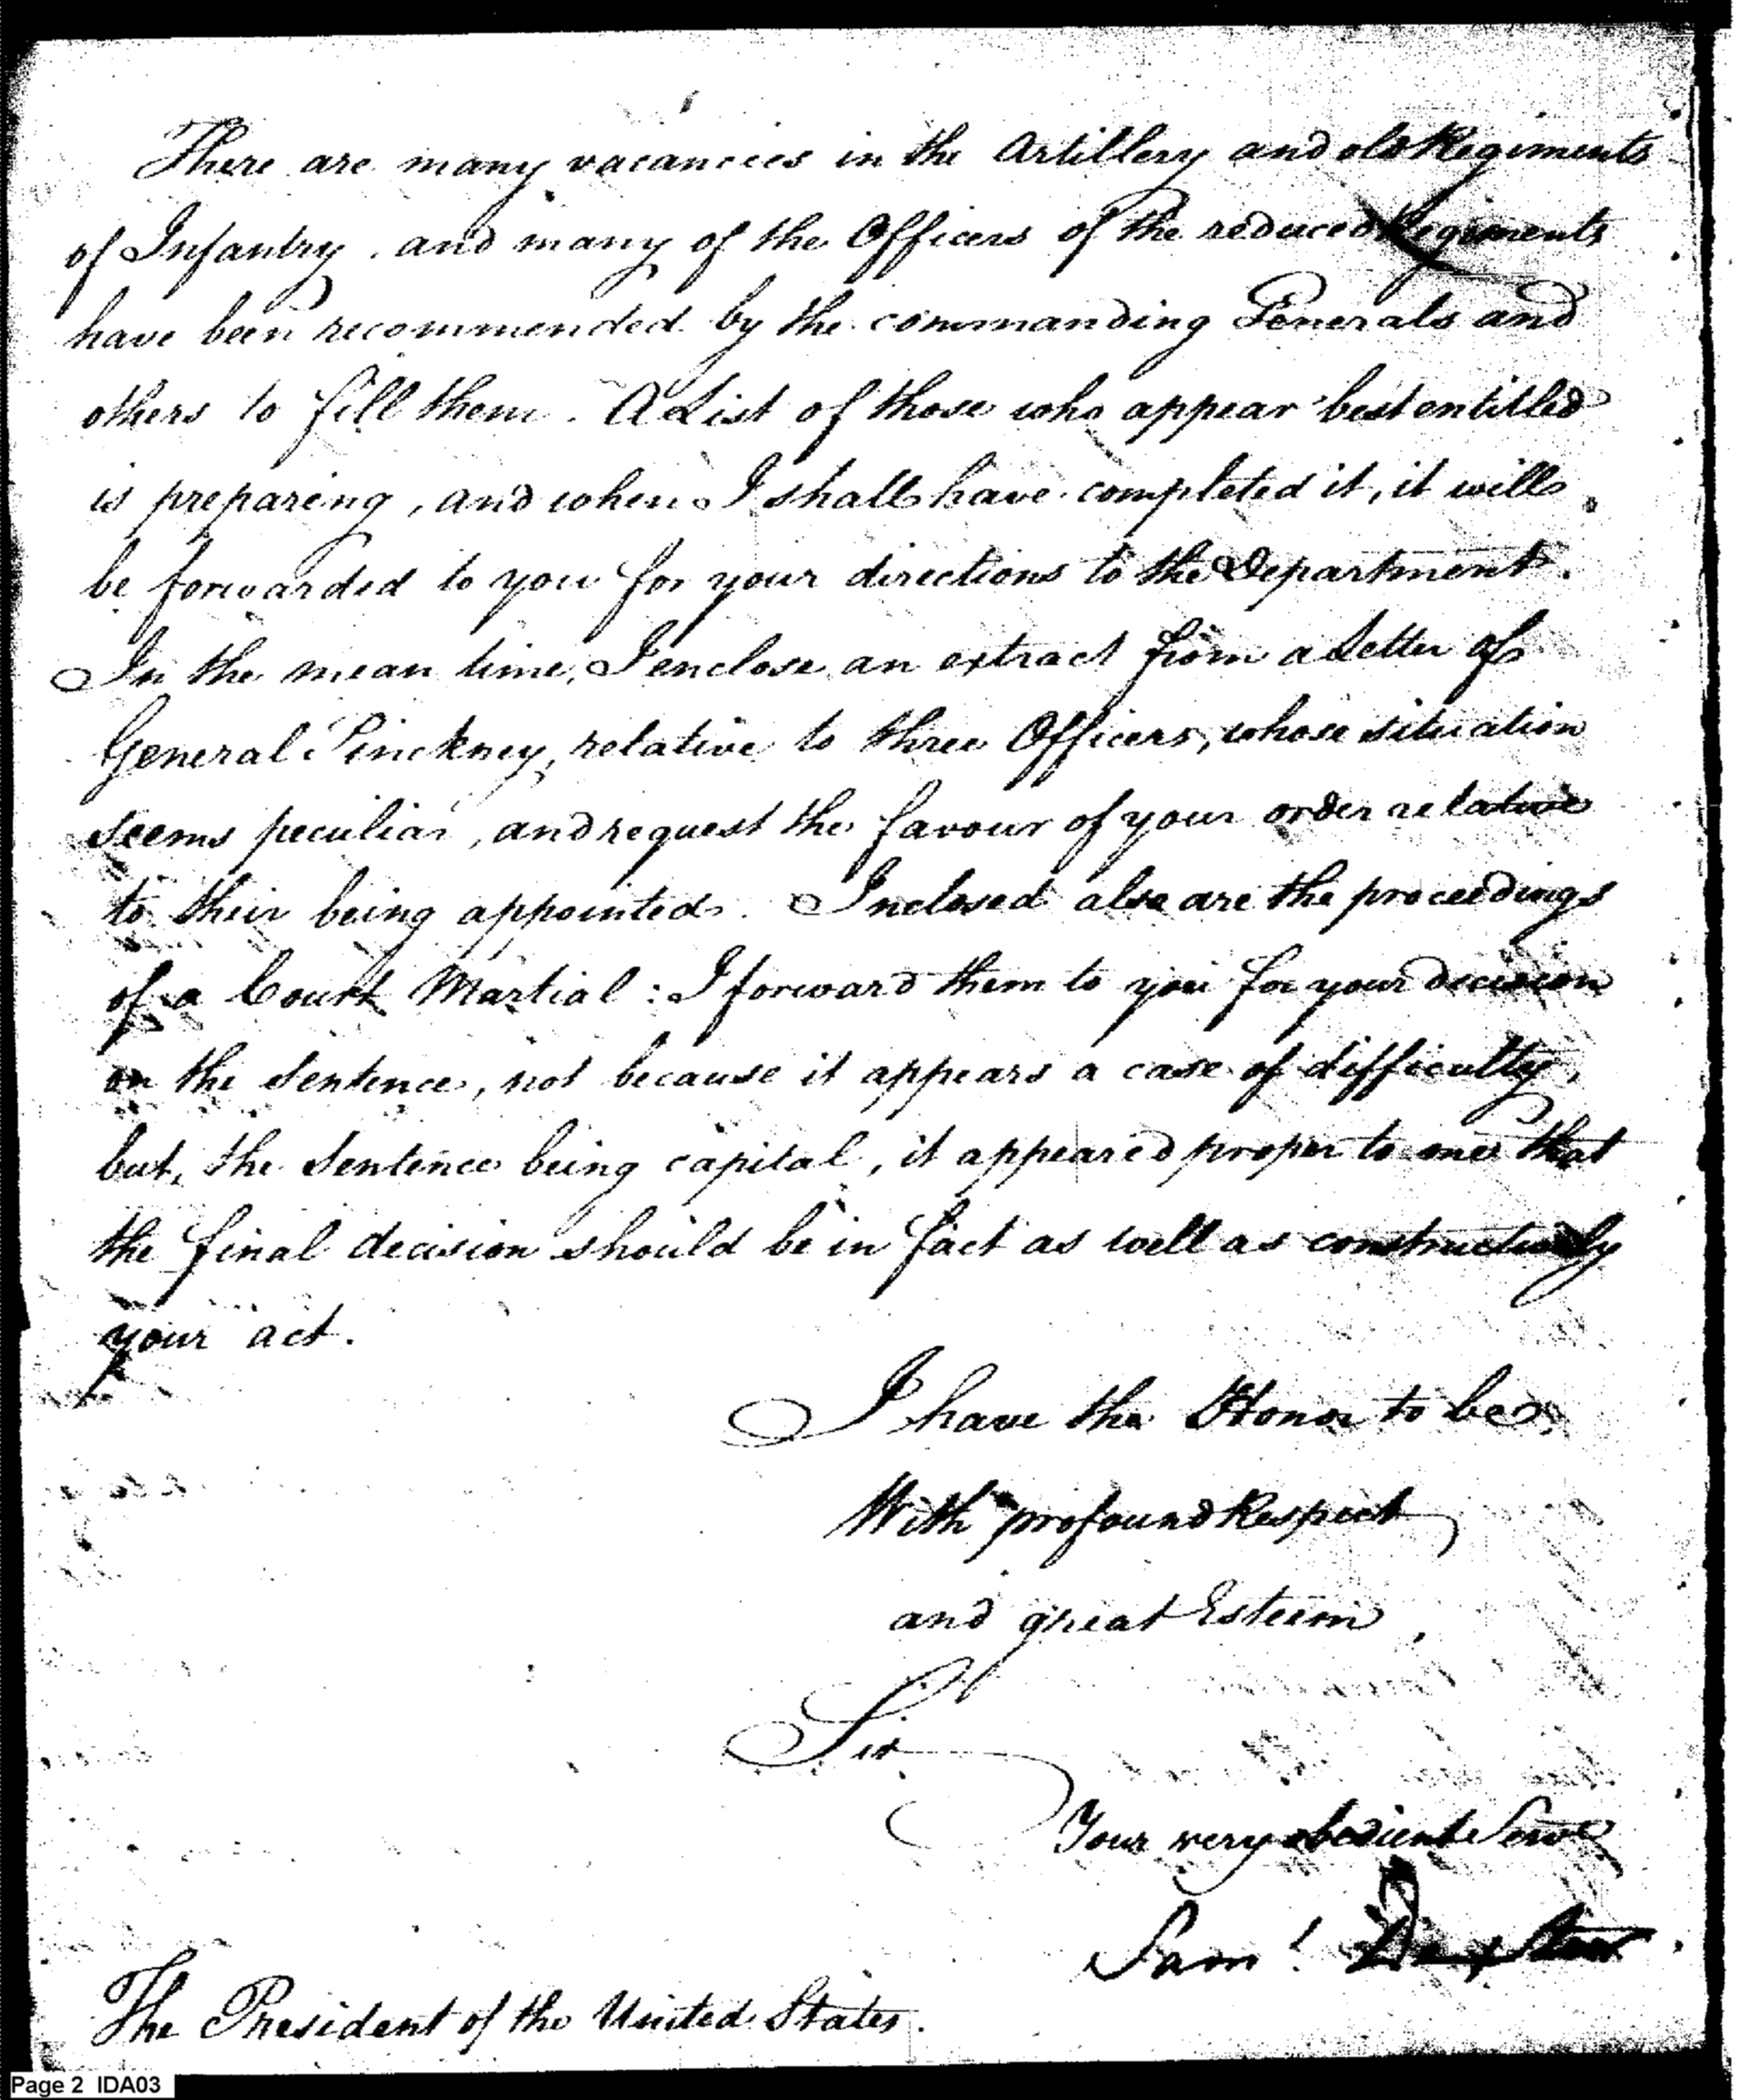 There are many vacancies in the Artillery and old Regiments
of Infantry, and many of the Officers of the reduced Regiments
have been recommended by the commanding Generals and
others to fill them. A List of those who appear best entitled
is preparing, and when I shall have completed it, it will
be forwarded to you for your directions to the Department.
In the mean time, I enclose an extract from a Letter of
General Pinckney, relative to three Officers, whose situation
seems peculiar, and request the favour of your order relative
to their being appointed. Inclosed also are the proceedings
of a Court Martial: I forward them to you for your decision
on the Sentence, not because it appears a case of difficulty,
but, the Sentence being capital, it appeared proper to me that
the final decision should be in fact as well as constructively
your act.
I have the Honor to be
With profound Respect
and great Esteem,
Sir
Your very obedient Servt
Saml Dexter
The President of the United States.
Page 2 IDA03